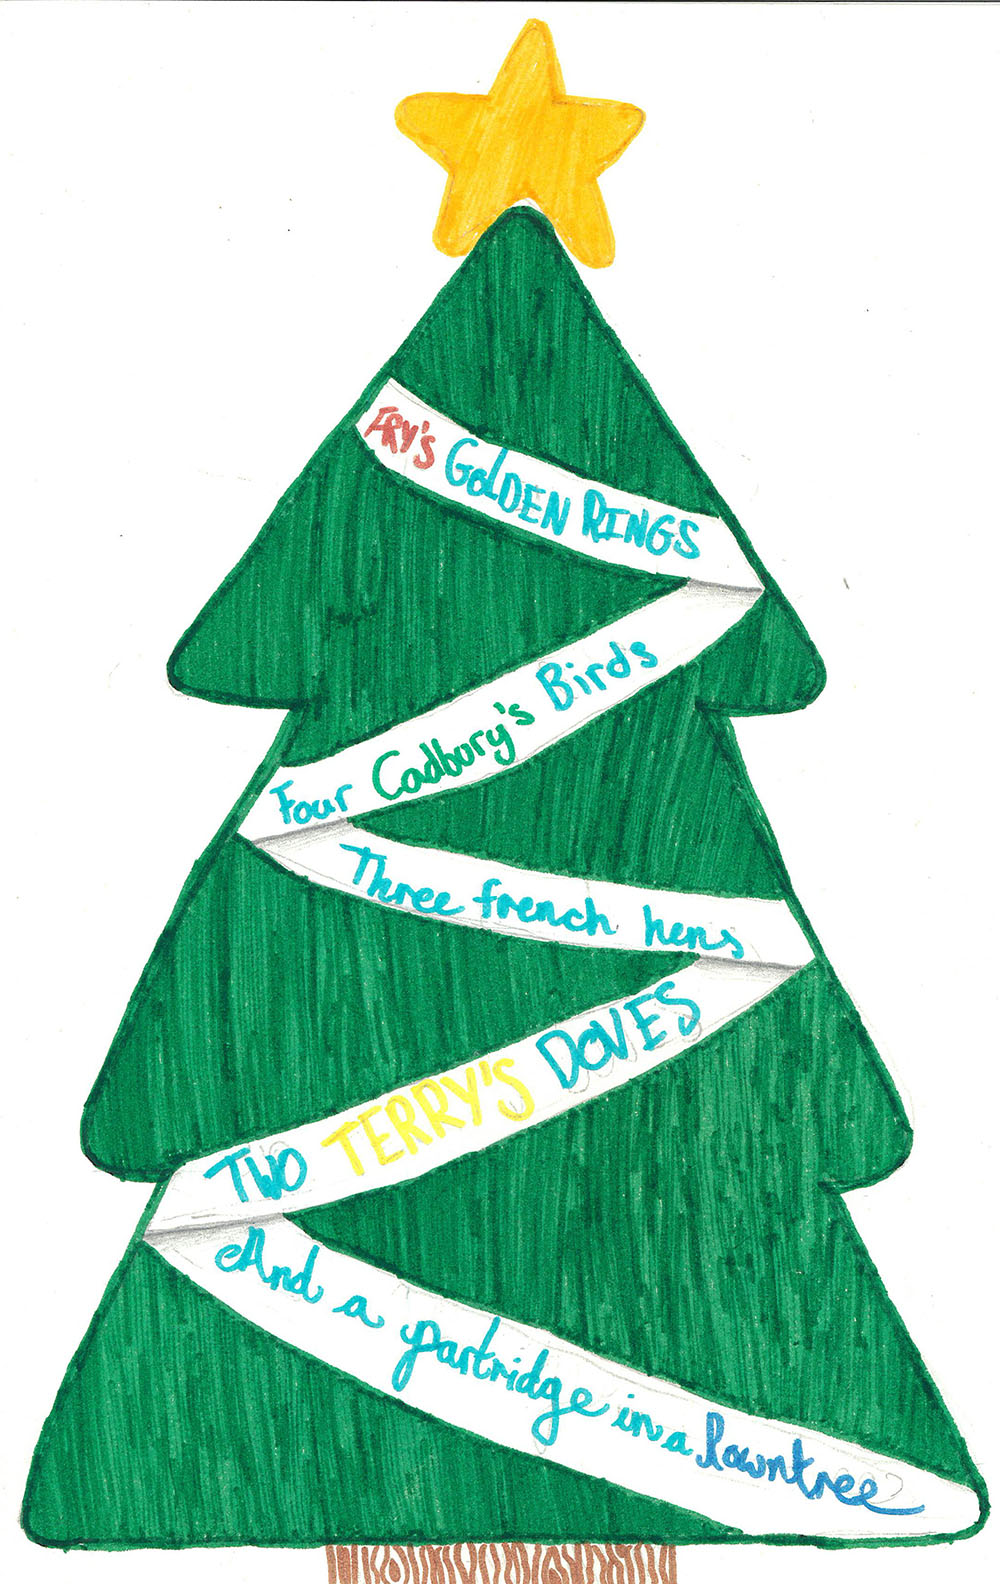 FRY'S GolDEN RINGS
Four Cadbury's Birds
Three french hens
TWO TERRY'S DOVES
And a partridge in a rowntree